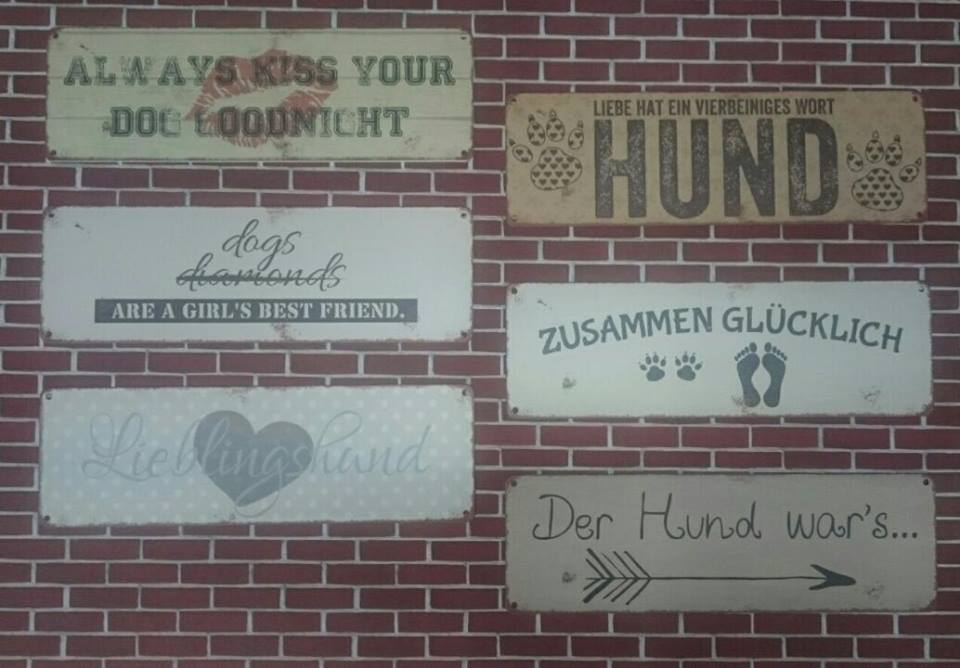 ALWAYS KISS YOUR
DOG GOODNIGHT
dogs
diamonds
ARE A GIRL'S BEST FRIEND.
Lieblingshund
LIEBE HAT EIN VIERBEINIGES WORT
HUND
ZUSAMMEN GLÜCKLICH
Der Hund war's...